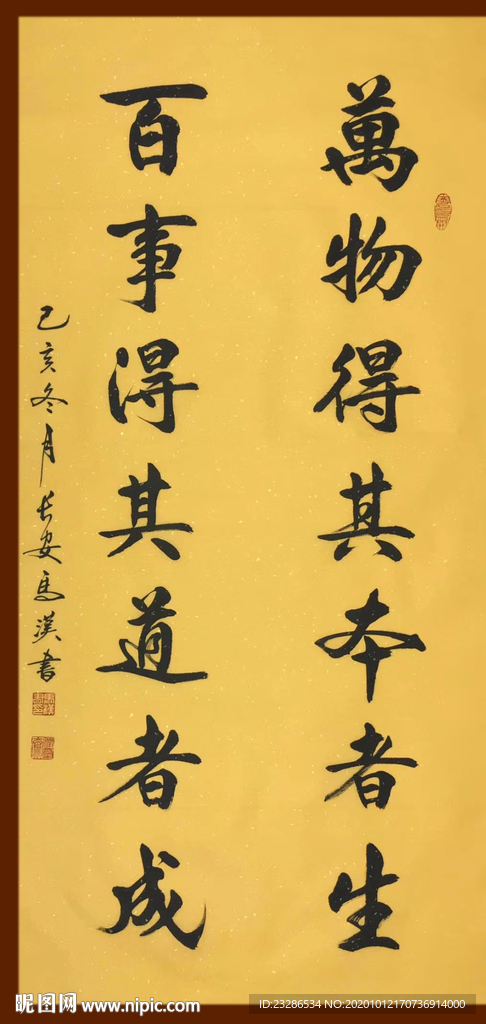 萬物得其本者生
百事得其道者成
己亥冬月长安馬漢書
昵图网 www.nipic.com
ID:23286534 NO:20201012170736914000